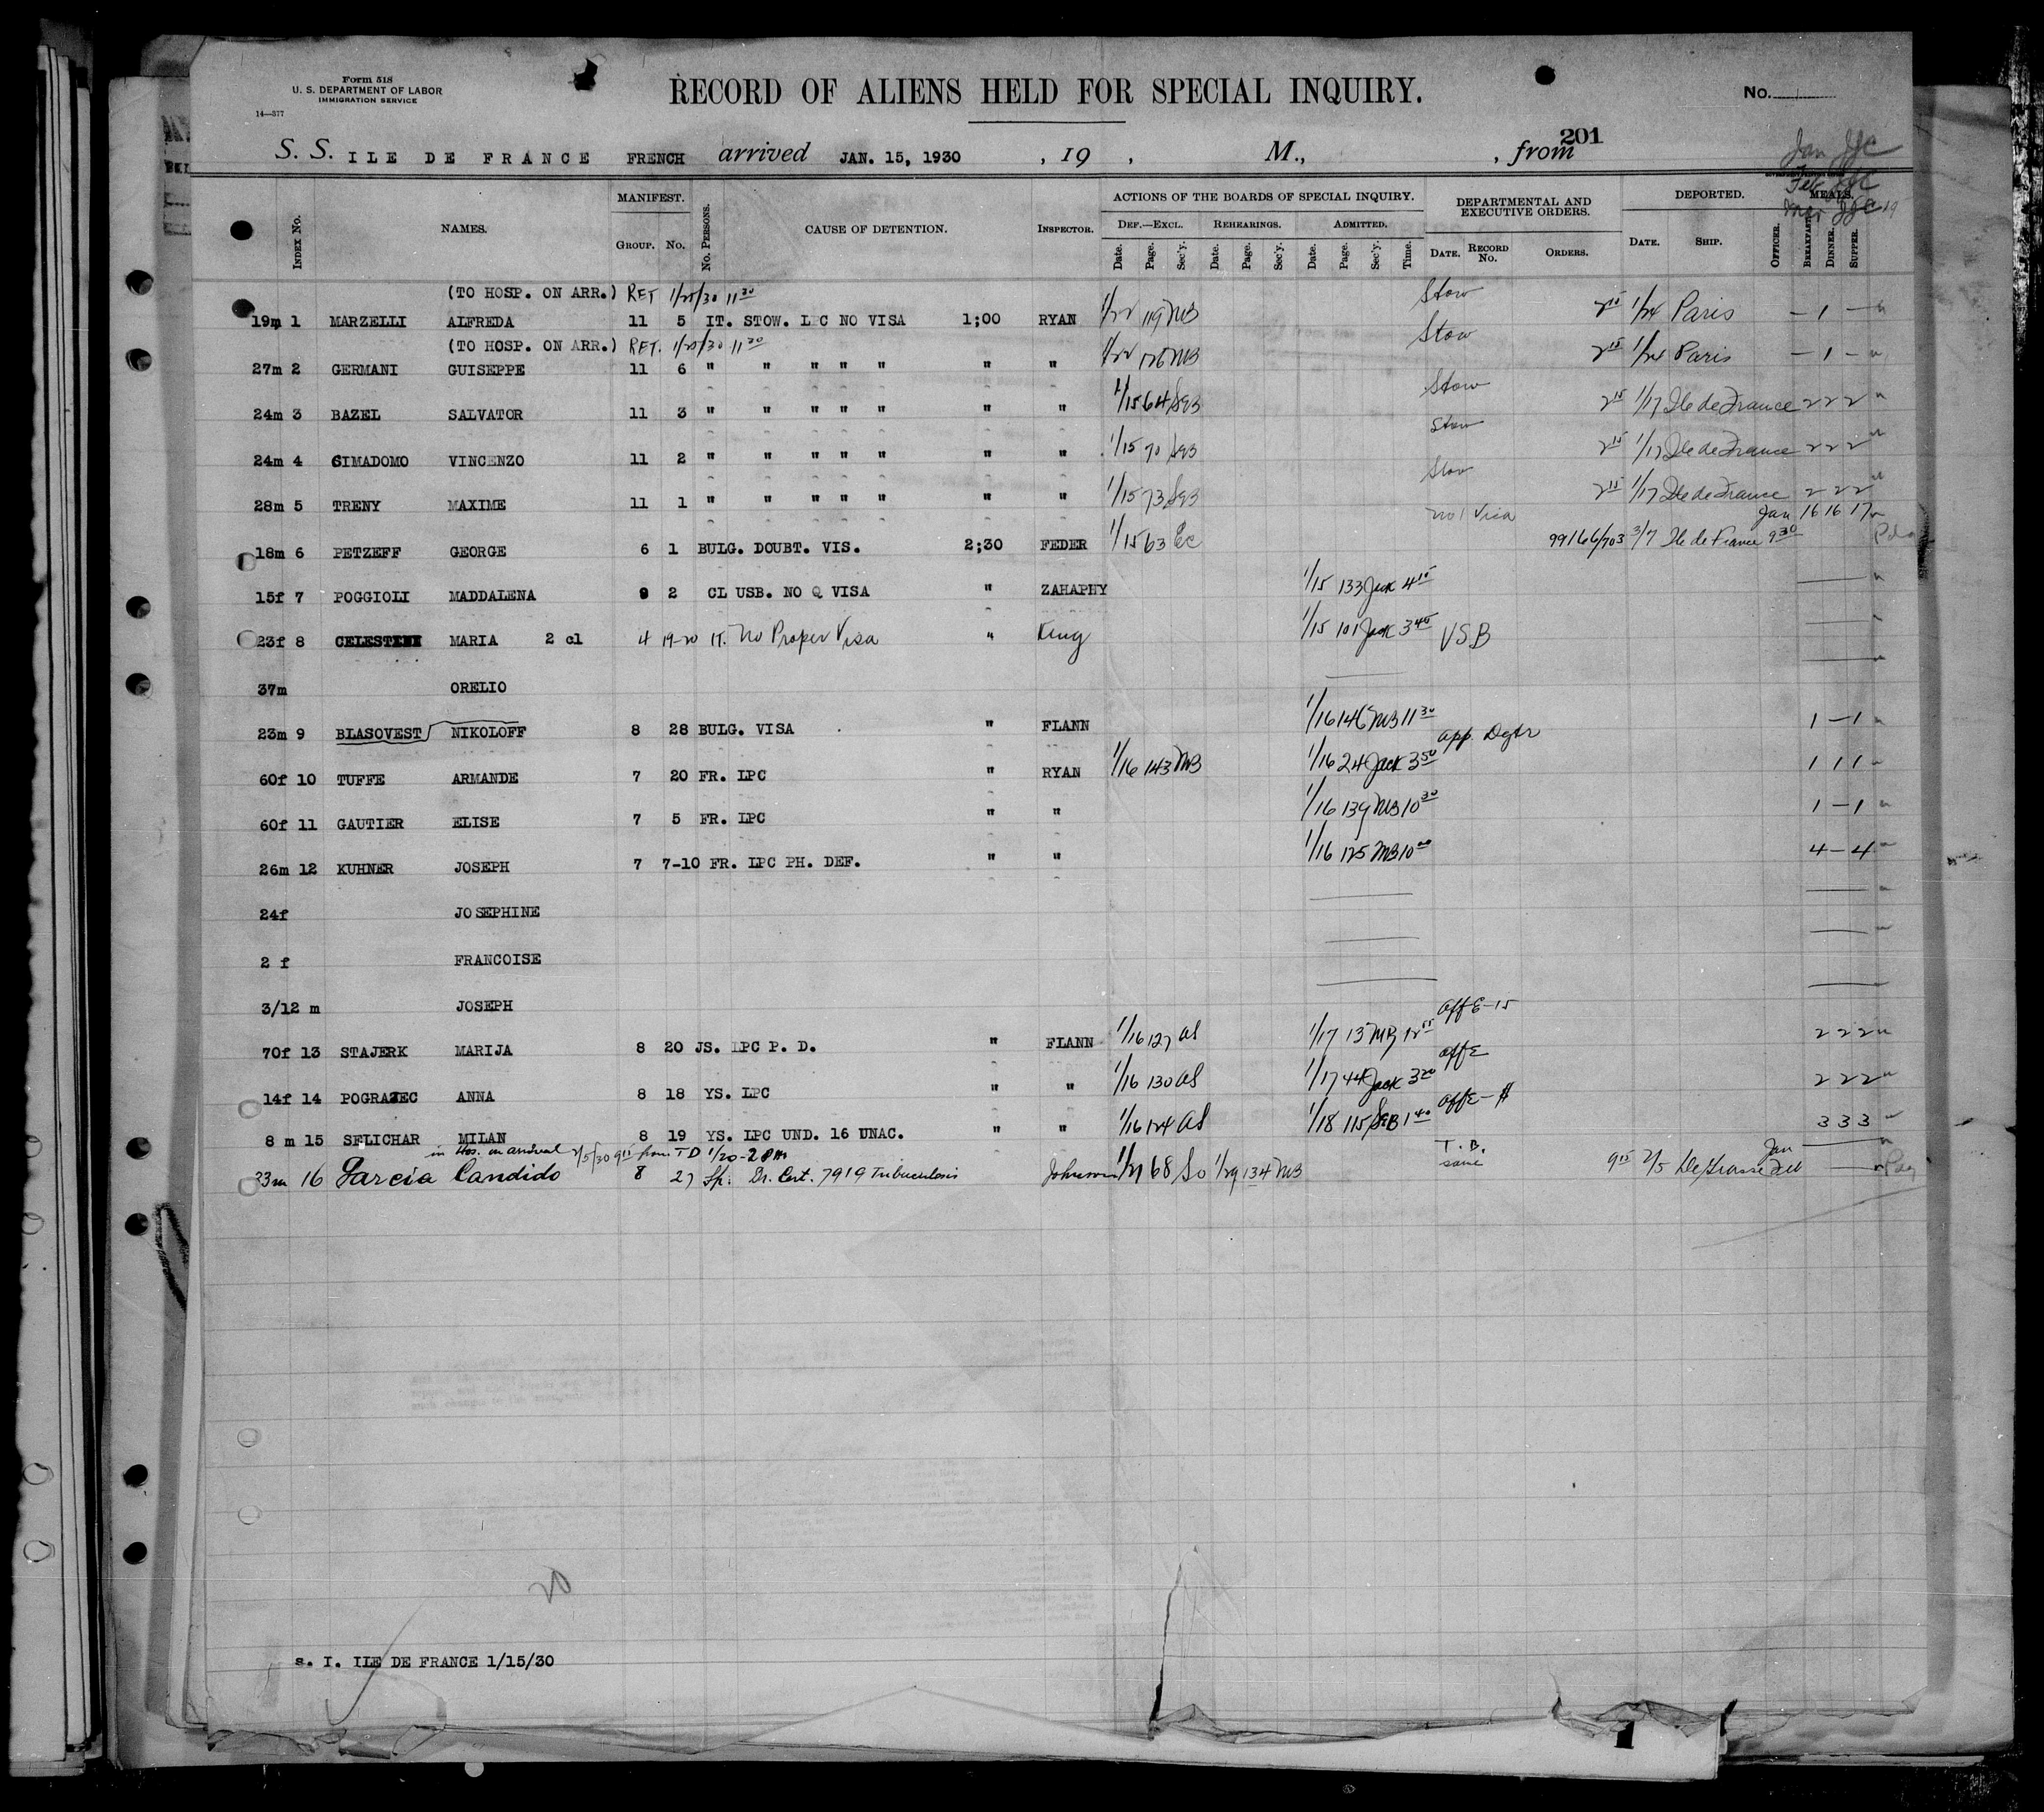 Form 518
U. S. DEPARTMENT OF LABOR
IMMIGRATION SERVICE
14—577
RECORD OF ALIENS HELD FOR SPECIAL INQUIRY.
No.
201
S. S. ILE DE FRANCE FRENCH arrived JAN. 15, 1930 , 19 , M., , from
INDEX No. NAMES. MANIFEST. GROUP. No. No. PERSONS. CAUSE OF DETENTION. INSPECTOR. ACTIONS OF THE BOARDS OF SPECIAL INQUIRY. DEF.—EXCL. REHEARINGS. ADMITTED. DEPARTMENTAL AND EXECUTIVE ORDERS. DEPORTED. MEALS.
Date. Page. Sec'y. Date. Page. Sec'y. Date. Page. Sec'y. Time. DATE. RECORD No. ORDERS. DATE. SHIP. OFFICER. BREAKFAST. DINNER. SUPPER.
(TO HOSP. ON ARR.) RET 11 30 Stow
19m 1 MARZELLI ALFREDA 11 5 IT. STOW. LPC NO VISA 1;00 RYAN 1/22 119 MB 2 15 1/24 Paris — 1 —
(TO HOSP. ON ARR.) RET. 11 30 Stow
27m 2 GERMANI GUISEPPE 11 6 " " " " " " " 1/22 126 MB 2 15 1/24 Paris — 1 —
24m 3 BAZEL SALVATOR 11 3 " " " " " " " 1/15 64 Stow 2 15 1/17 Ile de France 2 2 2
24m 4 CIMADOMO VINCENZO 11 2 " " " " " " " 1/15 70 Stow 2 15 1/17 Ile de France 2 2 2
28m 5 TRENY MAXIME 11 1 " " " " " " " 1/15 73 Stow 2 15 1/17 Ile de France 2 2 2
Jan 16 16 17
18m 6 PETZEFF GEORGE 6 1 BULG. DOUBT. VIS. 2;30 FEDER 1/15 63 Ec no Visa 99166/703 3/7 Ile de France 9 30
15f 7 POGGIOLI MADDALENA 9 2 CL USB. NO Q VISA " ZAHAPHY 1/15 133 Jack 4 15
23f 8 MARIA 2 cl 4 19-20 IT. No Proper Visa " King 1/15 101 Jack 3 45 VSB
37m ORELIO
23m 9 BLASOVEST NIKOLOFF 8 28 BULG. VISA " FLANN 1/16 146 MB 11 30 1 — 1
60f 10 TUFFE ARMANDE 7 20 FR. LPC " RYAN 1/16 143 MB 1/16 24 Jack 3 50 app. Dgtr 1 1 1
60f 11 GAUTIER ELISE 7 5 FR. LPC " " 1/16 139 MB 10 30 1 — 1
26m 12 KUHNER JOSEPH 7 7-10 FR. LPC PH. DEF. " " 1/16 125 MB 10 00 4 — 4
24f JOSEPHINE
2 f FRANCOISE
3/12 m JOSEPH
70f 13 STAJERK MARIJA 8 20 JS. LPC P. D. " FLANN 1/16 127 AS 1/17 13 MB aff E-15 2 2 2
14f 14 ANNA 8 18 YS. LPC " " 1/16 130 AS 1/17 44 Jack 3 20 aff E 2 2 2
8 m 15 SFLICHAR MILAN 8 19 YS. LPC UND. 16 UNAC. " " 1/16 124 AS 1/18 115 SEB 1 40 aff E - $ 3 3 3
in Hos. on arrival 2/5/30 9 15 from T D 1/20 - 2 PM T. B. Jan
33m 16 Garcia Candido 8 27 Sp. Dr. Cert. 7919 Tuberculosis Johnson 68 So 1/29 134 MB same 9 15 2/5 De Grasse Feb
s. I. ILE DE FRANCE 1/15/30
1